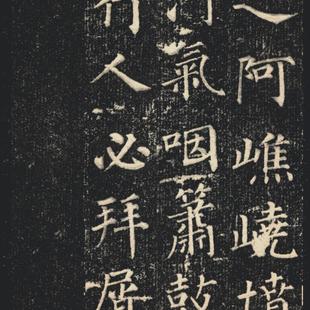 之阿嶕嶢墳
氣咽簫鼓
行人必拜屑